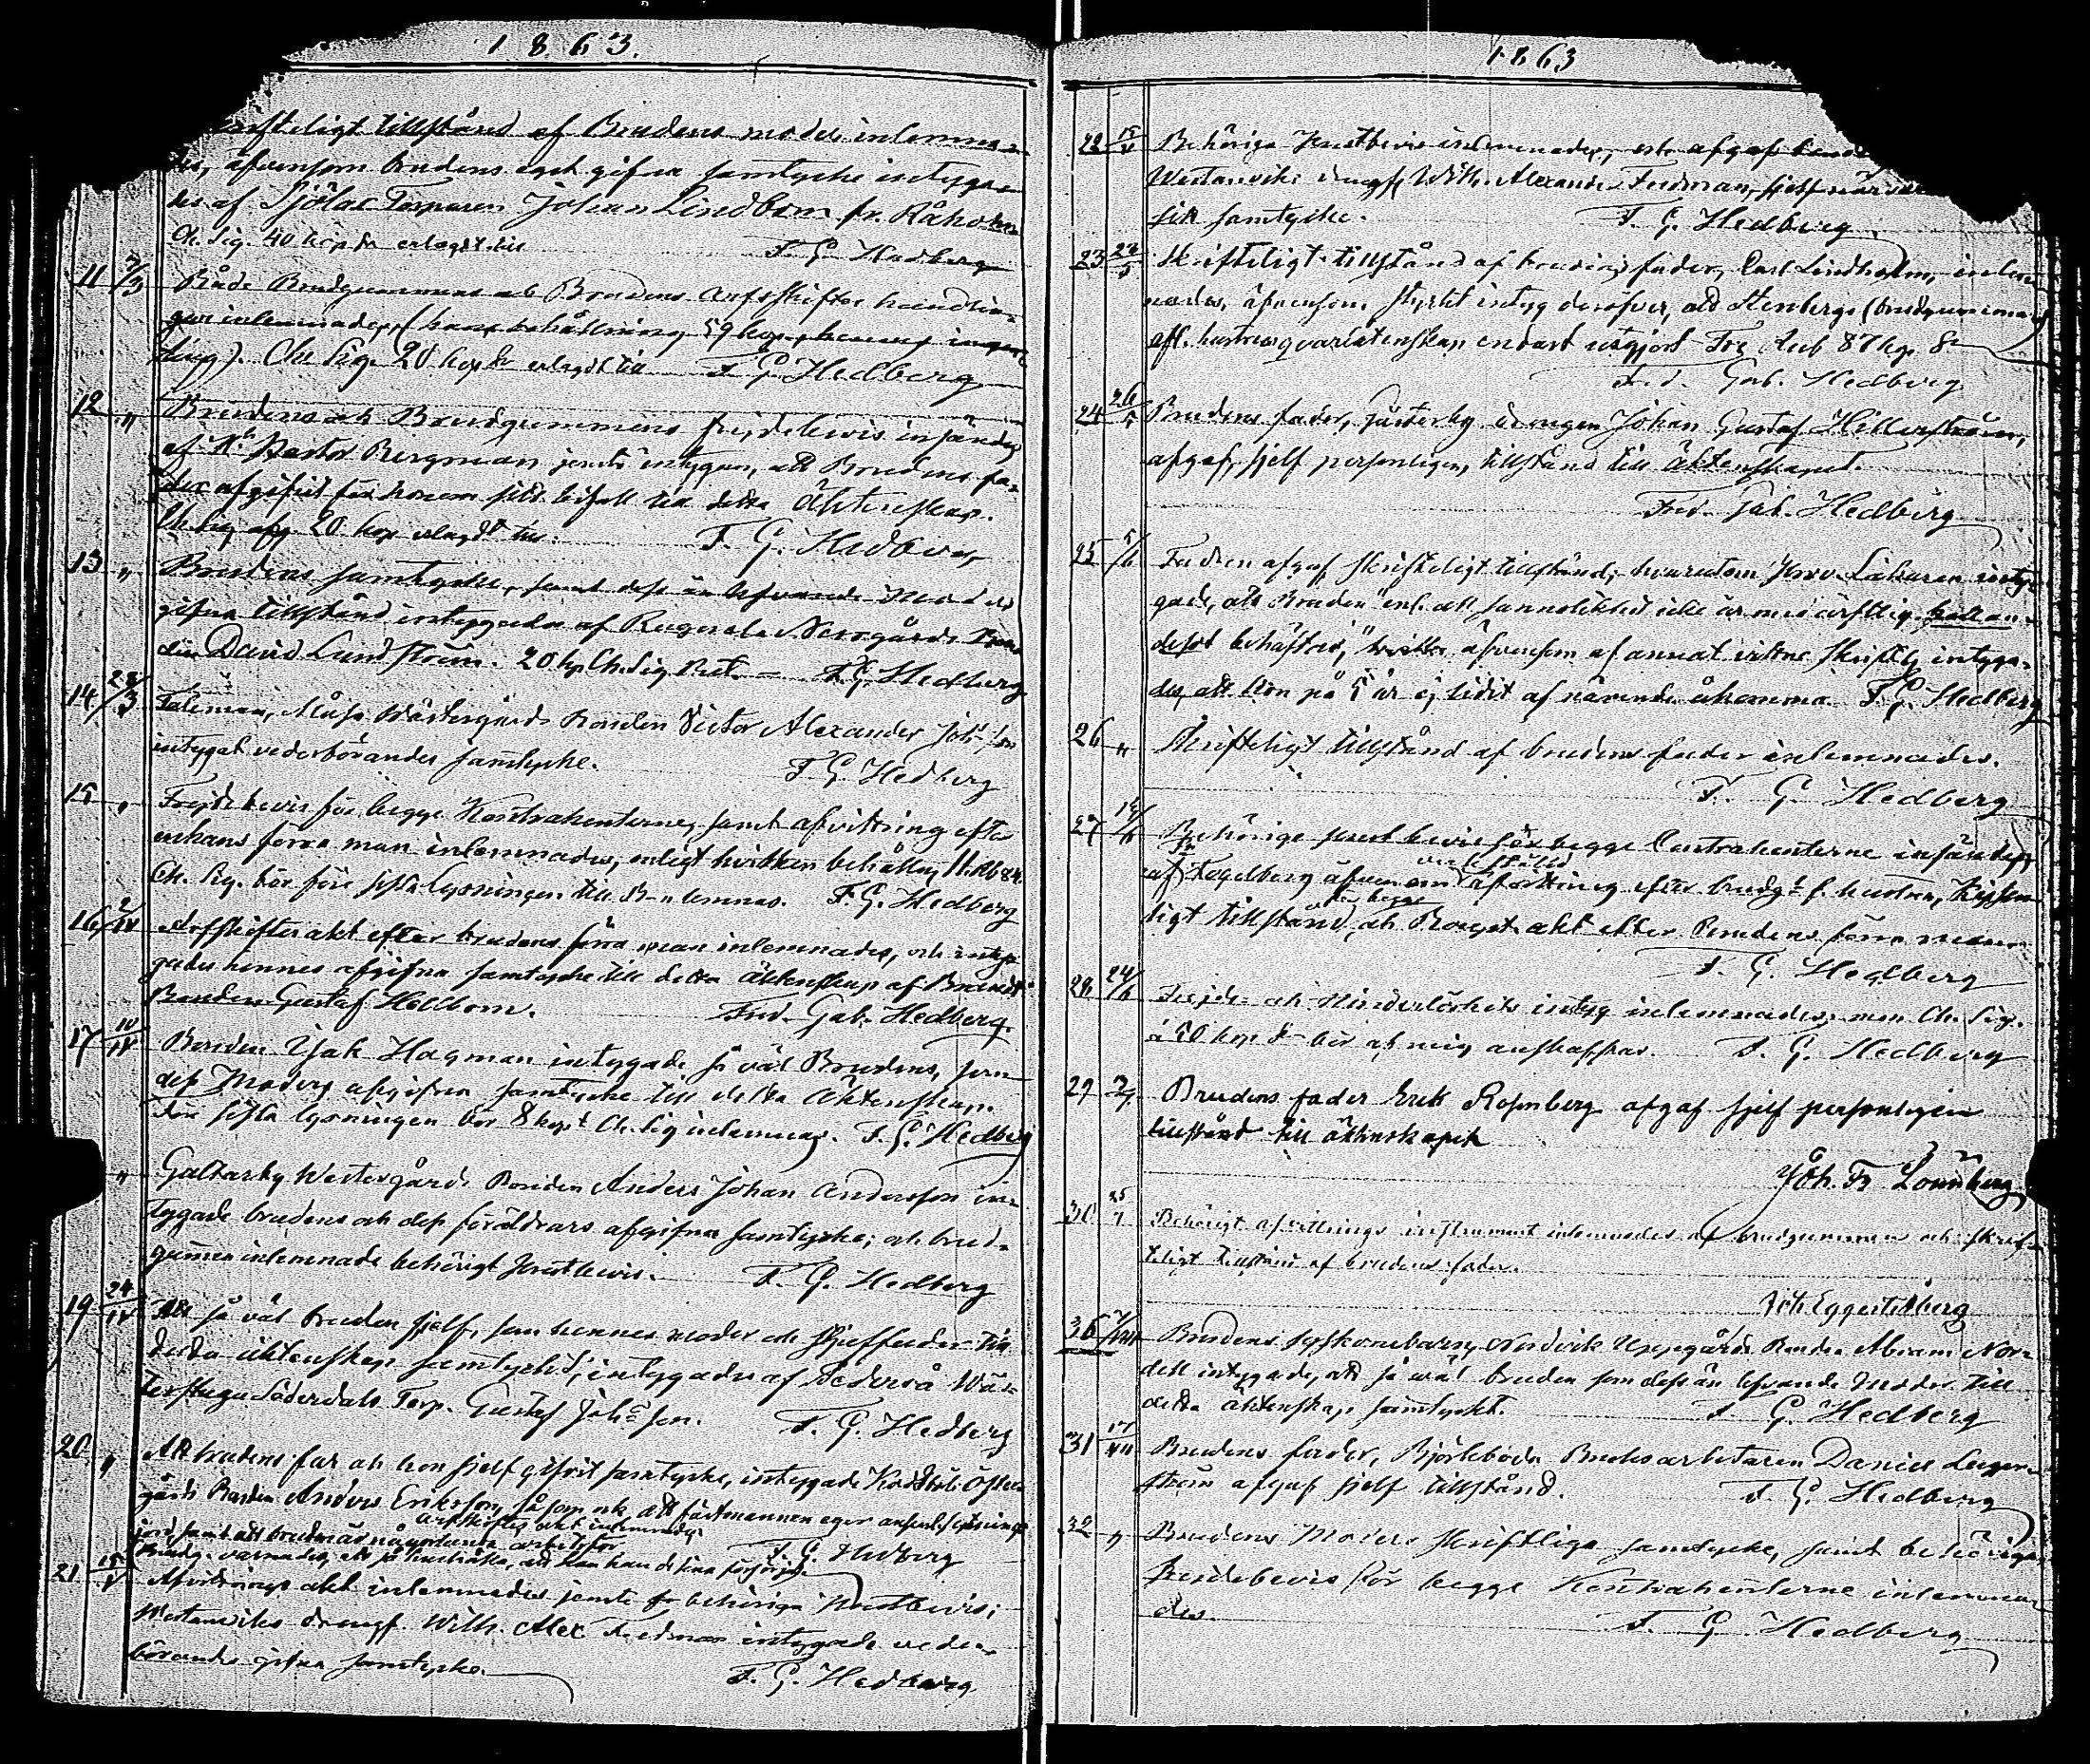 1863.
skrifteligt tillstånd af Brudens moder inlemna-
des, äfvensom brudens eget gifna samtycke intyga-
des af Sjölax Torparen Johan Lindbom fr. Råholm
Ch. Sig. 40 kop. sr erlagdt till F. G. Hedberg
11 7/3 Både Brudgummens och Brudens arfskiftes handlin-
gar inlemnades, (hans behållning 59 kop., hennes ingen-
ting). Ch. Sig. 20 kop. sr erlagdt till F. G. Hedberg
12 " Brudens och Brudgummens frejdebevis insändes
af Hr Pastor Bergman jemte intygan, att Brudens fa-
der afgifvit för honom sitt bifall till detta Äktenskap.
Ch. Sig. afg. 20 kop. erlagdt till. F. G. Hedberg
13 " Brudens samtycke, samt dess än lefvande Moders
gifna tillstånd intygades af Rugnola Norrgårds Bon-
den David Lundström. 20 kp. Ch. Sig. Rec. — F. G. Hedberg
14 28/3 Taleman, Måsa Wästergårds Bonden Victor Alexander Joh:sson
intygat vederbörandes samtycke. F. G. Hedberg
15 " Frejdebevis för begge Kontrahenterne, samt afvittring efter
enkans förra man inlemnades, enligt hvilken behålln. 11. Rb 84
Ch. Sig. bör före sista lysningen till B-n lemnas. F. G. Hedberg
16 2/IV Arfskiftesakt efter brudens förra man inlemnades, och intyga-
gades hennes afgifna samtycke till detta äktenskap af
Bonden Gustaf Hellbom. Fred. Gab. Hedberg.
17 10/IV Bonden Isak Hagman intygade så väl Brudens, som
dess Moders afgifna samtycke till detta äktenskap.
För sista lysningen bör 8 kop. Ch. Sig inlemnas. F. G. Hedberg
" Galtarby Westergårds Bonden Anders Johan Andersson in-
tygade brudens och dess föräldrars afgifna samtycke; och brud-
gummen inlemnade behörigt Prestbevis. F. G. Hedberg
19 24/IV Att så väl bruden sjelf, som hennes moder och styffader till
detta äktenskap samtyckt, intygades af Pederså Wäs-
terstugu Söderdahls Torp. Gustaf Joh:sson. F. G. Hedberg
20 " Att brudens far och hon sjelf gifvit samtycke, intygade Öster-
gårds Bonden Anders Eriksson, såsom ock att fästmannen eger
arfskiftes akt inlemnades
jord, samt att bruden är någorlunda arbetsför
F. G. Hedberg
21 15/V Afvittrings akt inlemnades jemte behöriga Prestbevis;
Westanviks drengf. Wilh. Alex Fredman intygade veder-
börandes gifna samtycke. F. G. Hedberg
1863
22 15/V Behöriga Prestbevis inlemnades, och afgaf
Westanviks drengf. Wilh. Alexander Fredman, sjelf närvarande
sitt samtycke. F. G. Hedberg
23 23/5 Skrifteligt tillstånd af brudens fader, Carl Lindholm, inlem-
nades, äfvensom styrkt intyg deröfver, att Stenbergs (brudgummens)
afl. hustrus qvarlåtenskap endast utgjort Tre Rub 87 kp. S.
Fred. Gab. Hedberg
24 26/5 Brudens fader, Gästerby drengen Johan Gustaf Hellerström,
afgaf, sjelf personligen, tillstånd till Äktenskapet.
Fred. Gab. Hedberg
25 5/6 Fadren afgaf skrifteligt tillstånd, hvarutom Prov. Läkaren inty-
gade, att Bruden "enl. all sannolikhet icke är med ärftlig fallan-
desot behäftad," äfvensom af annat vittne skriftlig intyga-
des, att hon på 5 år ej lidit af nämnde åkomma. F. G. Hedberg
26 " Skrifteligt tillstånd af brudens fader inlemnades.
F. G. Hedberg
27 14/6 Behörige prestbevis för begge Contrahenterne insändes
af Fr Fogelberg äfven om verkställd afvittring efter brudg-s f. hustru,
ligt tillstånd för begge och Bouppt. akt efter Brudens förra man.
F. G. Hedberg
28 24/6 Frejde- och Hinderlöshets intyg inlemnades men Ch. Sig.
à 50 kop. sr bör af mig anskaffas. F. G. Hedberg
29 3/7 Brudens fader Erik Rosenberg afgaf sjelf personligen
tillstånd till äktenskapet
Joh. Fr Lönnberg
30 25/7 Behörigt afvittrings instrument inlemnades af brudgummen och skrif-
teligt tillstånd af brudens fader.
Joh Eggertsberg
36 7/VIII Brudens syskonebarn, Nordvik Uppgårds Bonden Abram Nor-
dell intygade, att så wäl bruden som dess än lefvande Moder till
detta äktenskap samtyckt. F. G. Hedberg
31 17/VII Brudens fader, Björkboda Bruksarbetaren Daniel Lager-
ström afgaf sjelf tillstånd. F. G. Hedberg
32 " Brudens Moders skriftliga samtycke, samt behöriga
Frejdebevis för begge Kontrahenterne inlemna-
des. F. G Hedberg